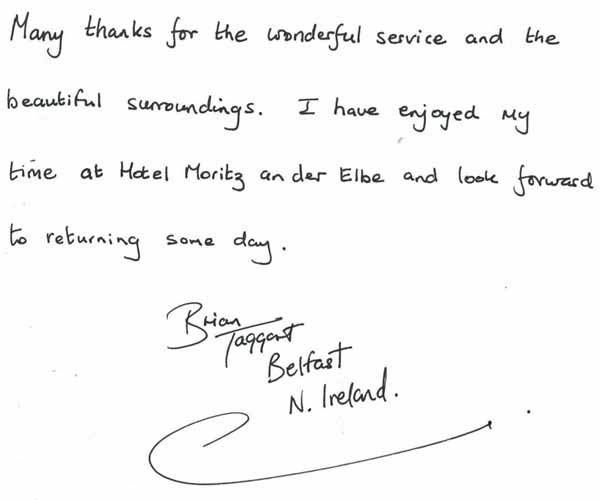 Many thanks for the wonderful service and the
beautiful surroundings. I have enjoyed my
time at Hotel Moritz an der Elbe and look forward
to returning some day.
Brian
Taggart
Belfast
N. Ireland.